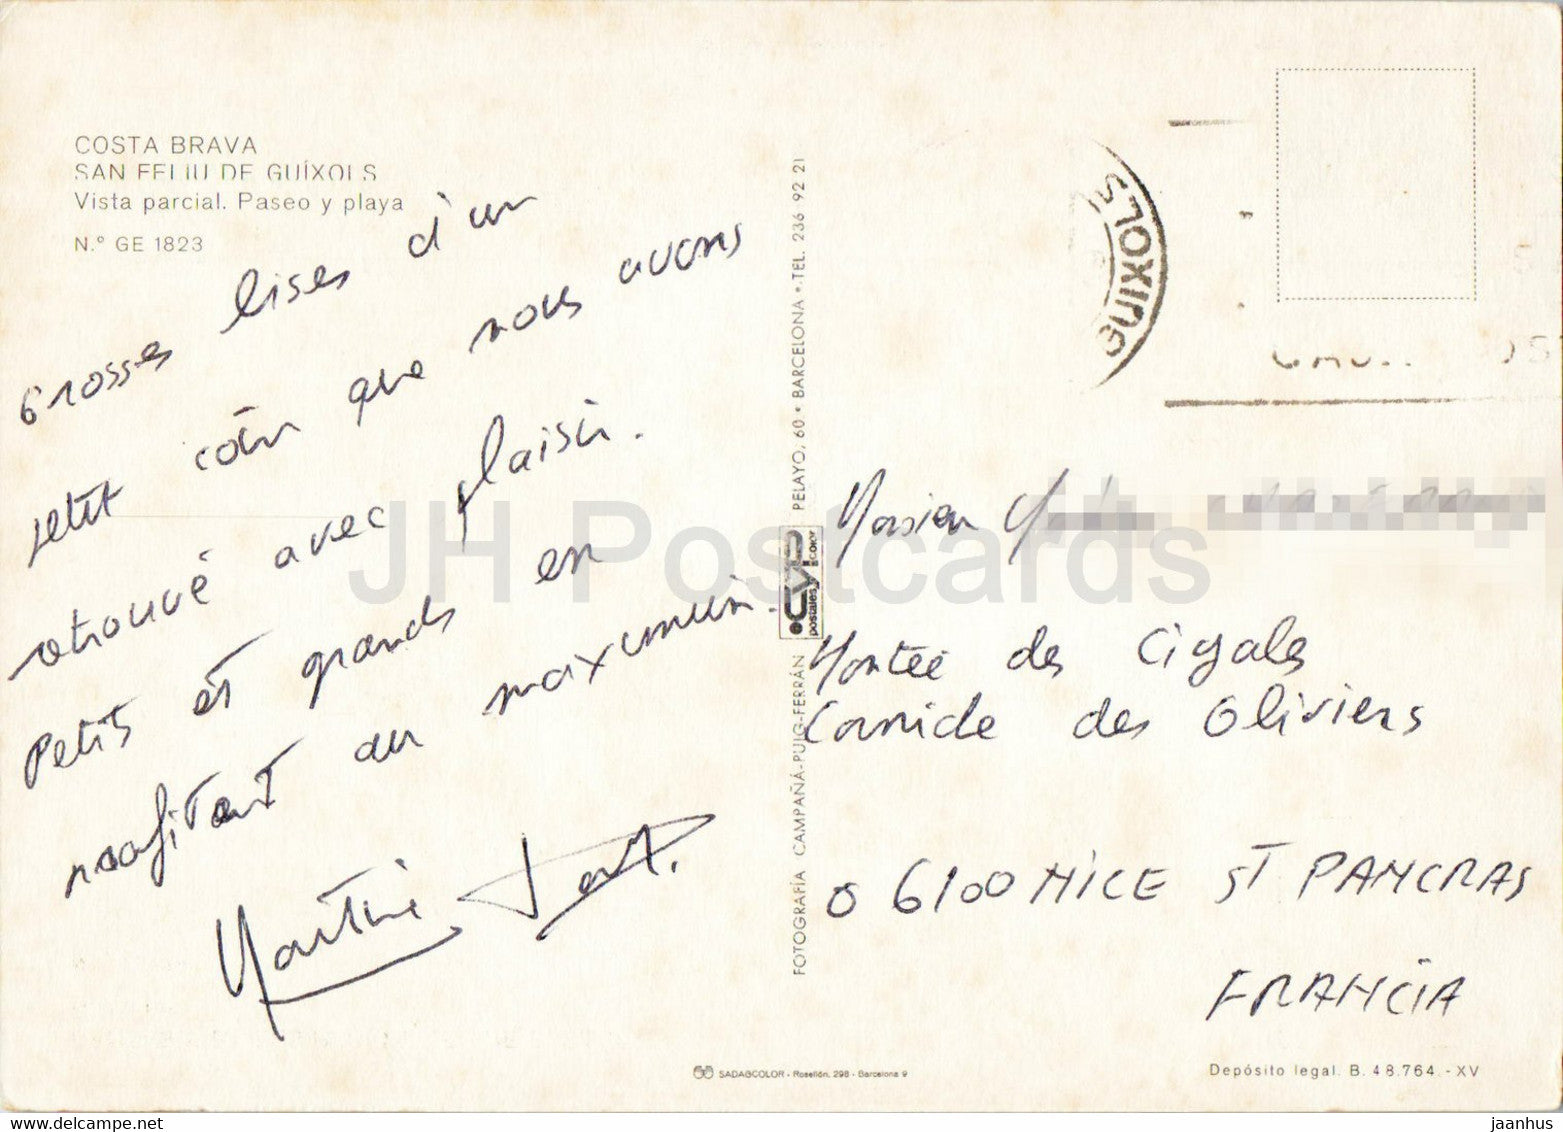 COSTA BRAVA
SAN FELIU DE GUÍXOLS
Vista parcial. Paseo y playa
N.° GE 1823
Grosses bises d'un
petit coin que nous avons
retrouvé avec plaisir.
Petits et grands en
profitent au maximum.
Martine
FOTOGRAFÍA CAMPAÑÁ-PUIG-FERRÁN
CYP
postales color
PELAYO, 60 • BARCELONA • TEL. 236 92 21
GUIXOLS
Monsieur
Montée des Cigales
Corniche des Oliviers
06100 NICE ST PANCRAS
FRANCIA
SADAGCOLOR - Rosellón, 298 - Barcelona 9
Depósito legal. B. 48.764. - XV
JH Postcards
delcampe.net
jaanhus